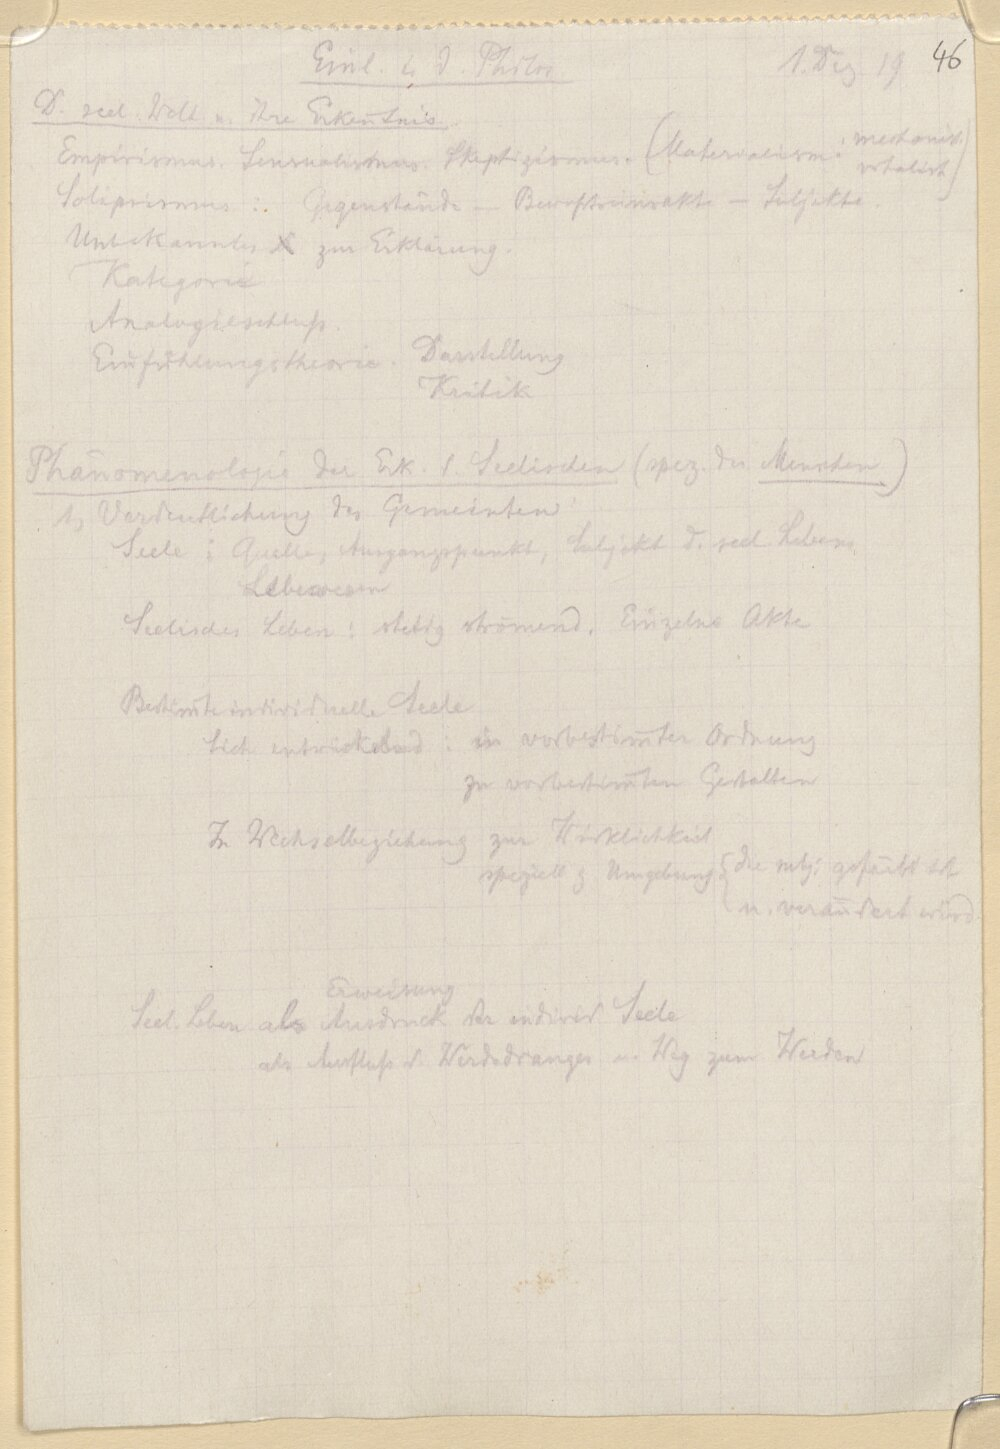 Einl. i. d. Philos 1. Dez. 19 46
D. seel. Welt u. ihre Erkentnis.
Empirismus. Sensualismus. Skeptizismus. (Materialism: mechanist.
vitalist)
Solipsismus: Gegenstände — Bewußtseinsakte — Subjekte.
Unbekanntes X zur Erklärung.
Kategorie
Analogieschluß.
Einfühlungstheorie. Darstellung
Kritik
Phänomenologie der Erk. d. Seelischen (spez. des Menschen)
1, Verdeutlichung des Gemeinten
Seele: Quelle, Ausgangspunkt, Subjekt d. seel. Lebens
Lebewesen
Seelisches Leben: stetig strömend. Einzelne Akte
Bestimte individuelle Seele
Sich entwickelnd: in vorbestimter Ordnung
zu vorbestimten Gestalten
In Wechselbeziehung zur Wirklichkeit
speziell z Umgebung {die subj. gefärbt ist
u. verändert wird
Erweisung
Seel. Leben als Ausdruck der individ Seele
als Ausfluß d. Werdedranges u. Weg zum Werden